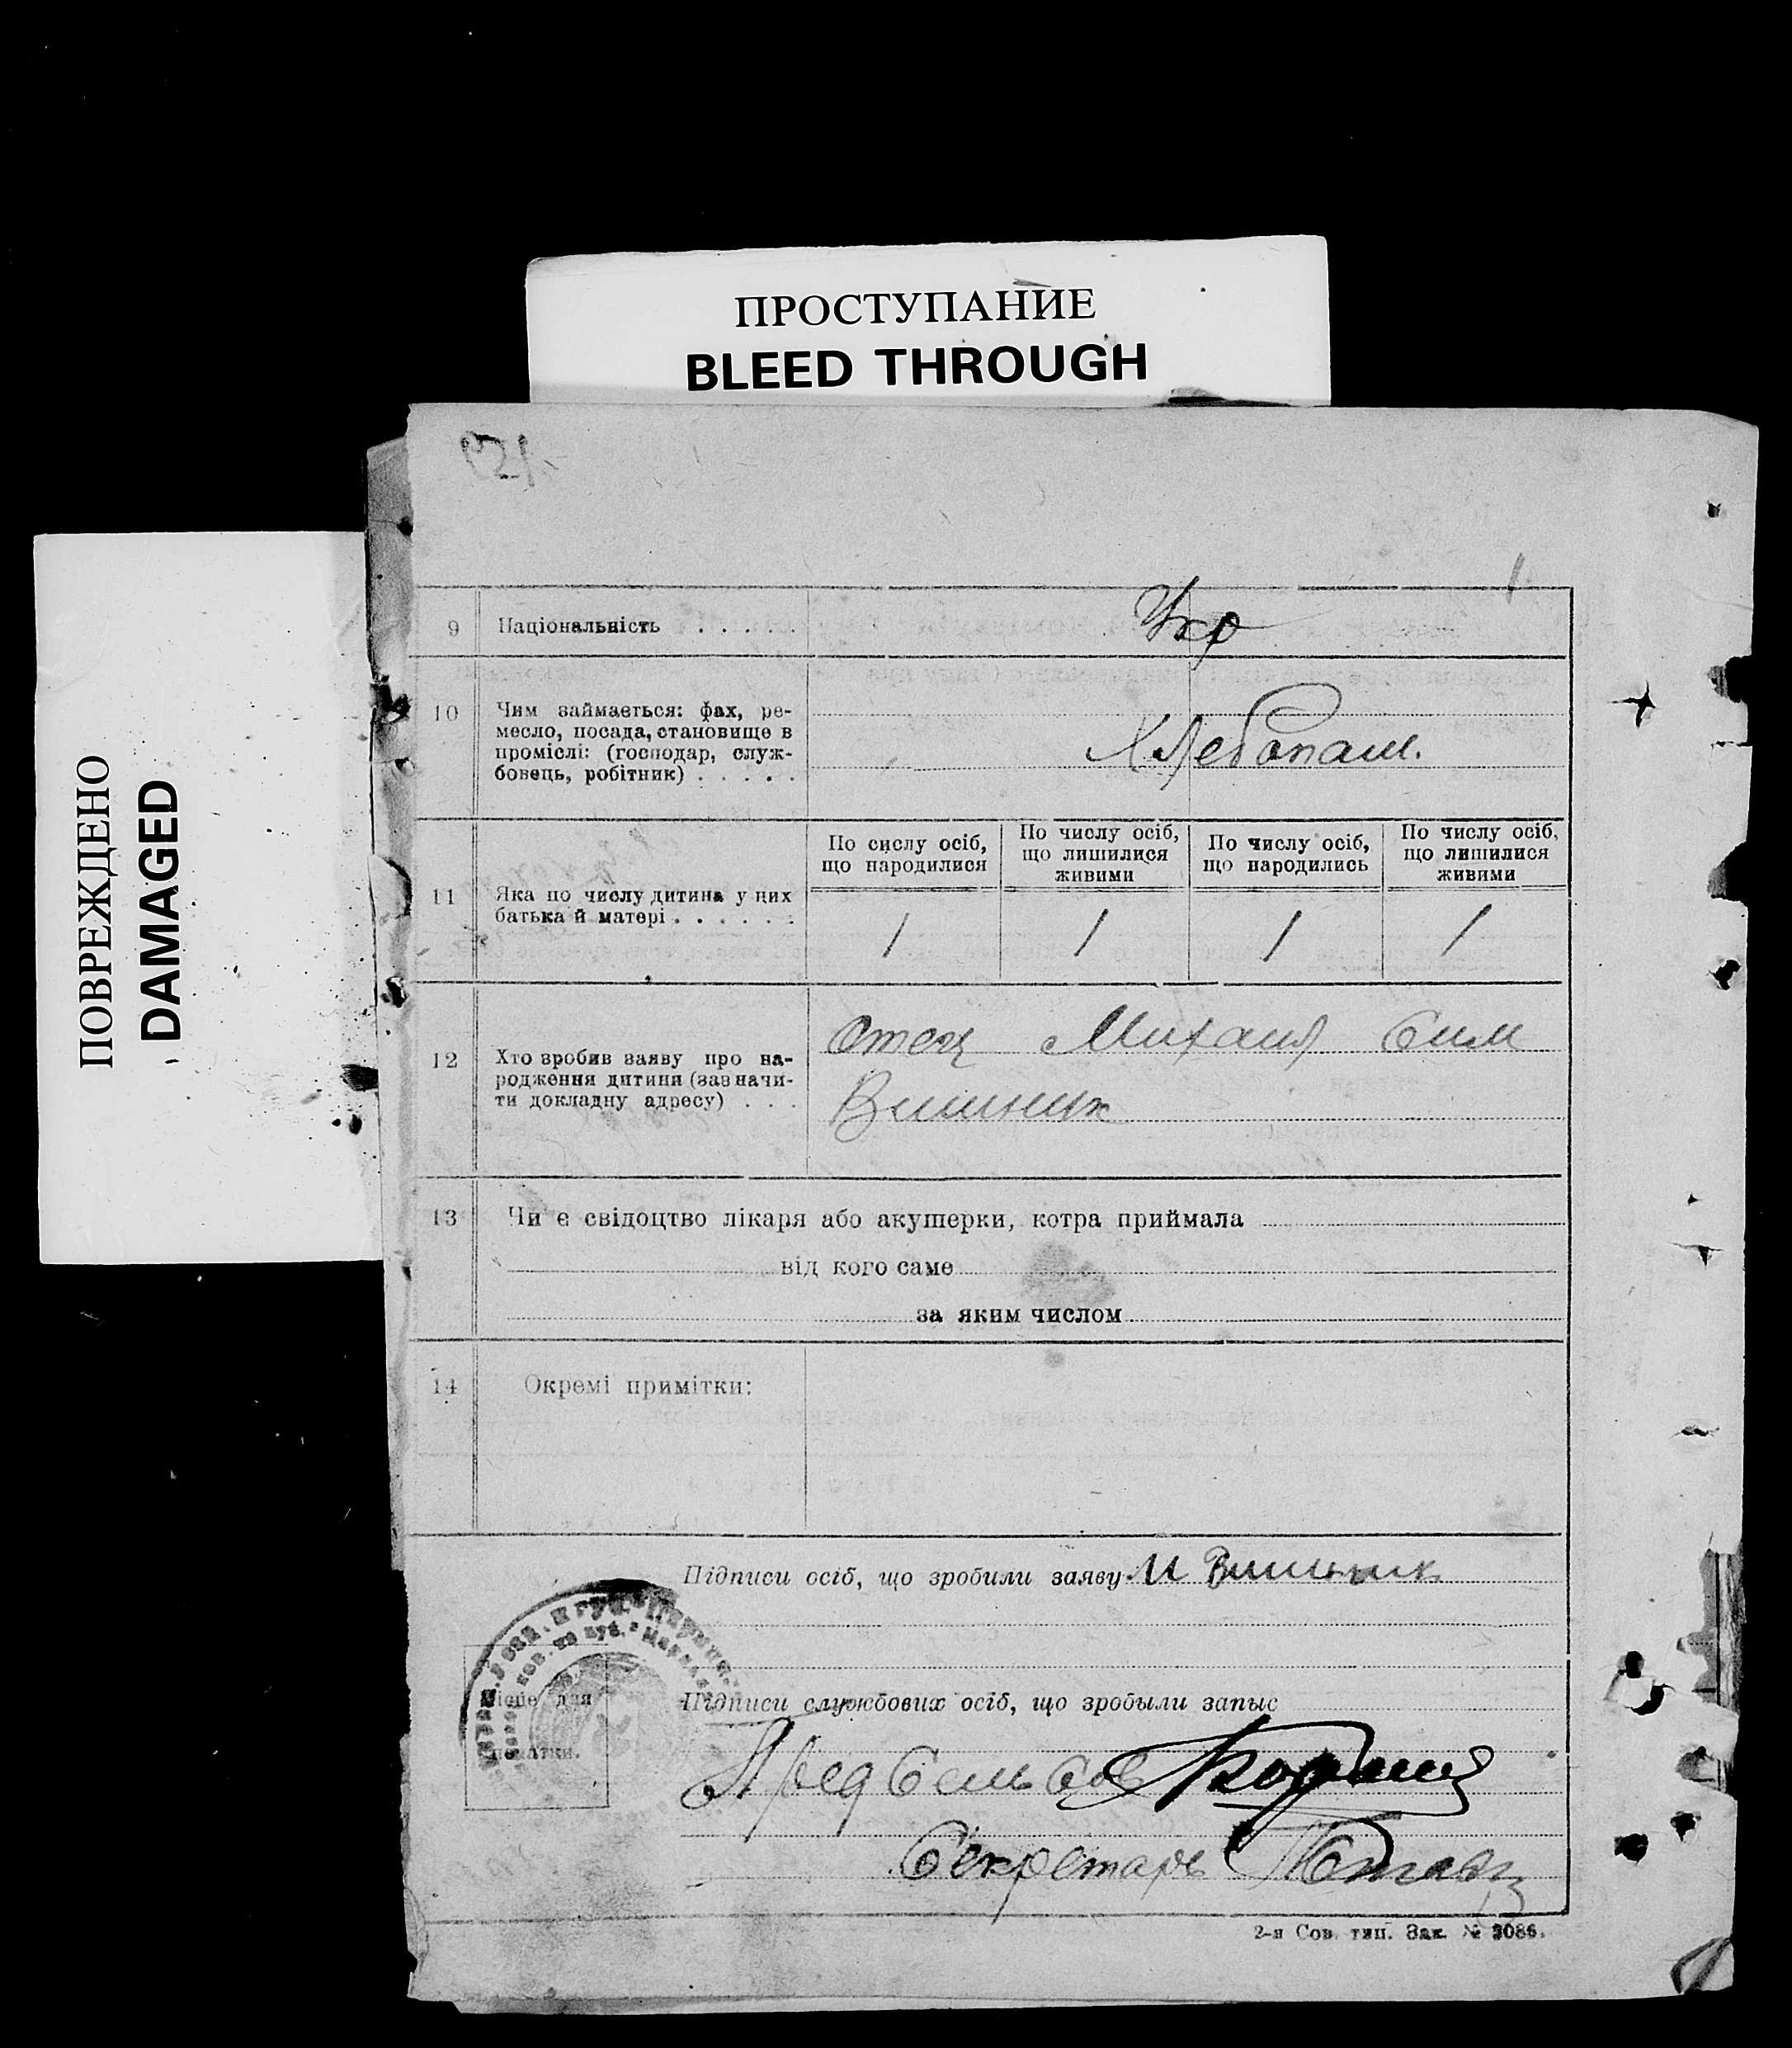 ПРОСТУПАНИЕ
BLEED THROUGH
ПОВРЕЖДЕНО
DAMAGED
9 Національність . . . . . Укр
10 Чим займається: фах, ре-
месло, посада, становище в
промислі: (господар, служ-
бовець, робітник) . . . . .
Хлебопаш.
11 Яка по числу дитина у цих
батька й матері . . . . . .
По сислу осіб,
що народилися
По числу осіб,
що лишилися
живими
По числу осіб,
що народились
По числу осіб,
що лишилися
живими
1 1 1 1
12 Хто зробив заяву про на-
родження дитини (зазначи-
ти докладну адресу) . . .
Отец Михаил Сим
Вишник
13 Чи є свідоцтво лікаря або акушерки, котра приймала
від кого саме
за яким числом
14 Окремі примітки:
Підписи осіб, що зробили заяву М Вишник
Місце для
печатки.
Підписи службових осіб, що зробыли запыс
Пред Сель Сов
Секретарь
2-я Сов. тип. Зак. № 3086.